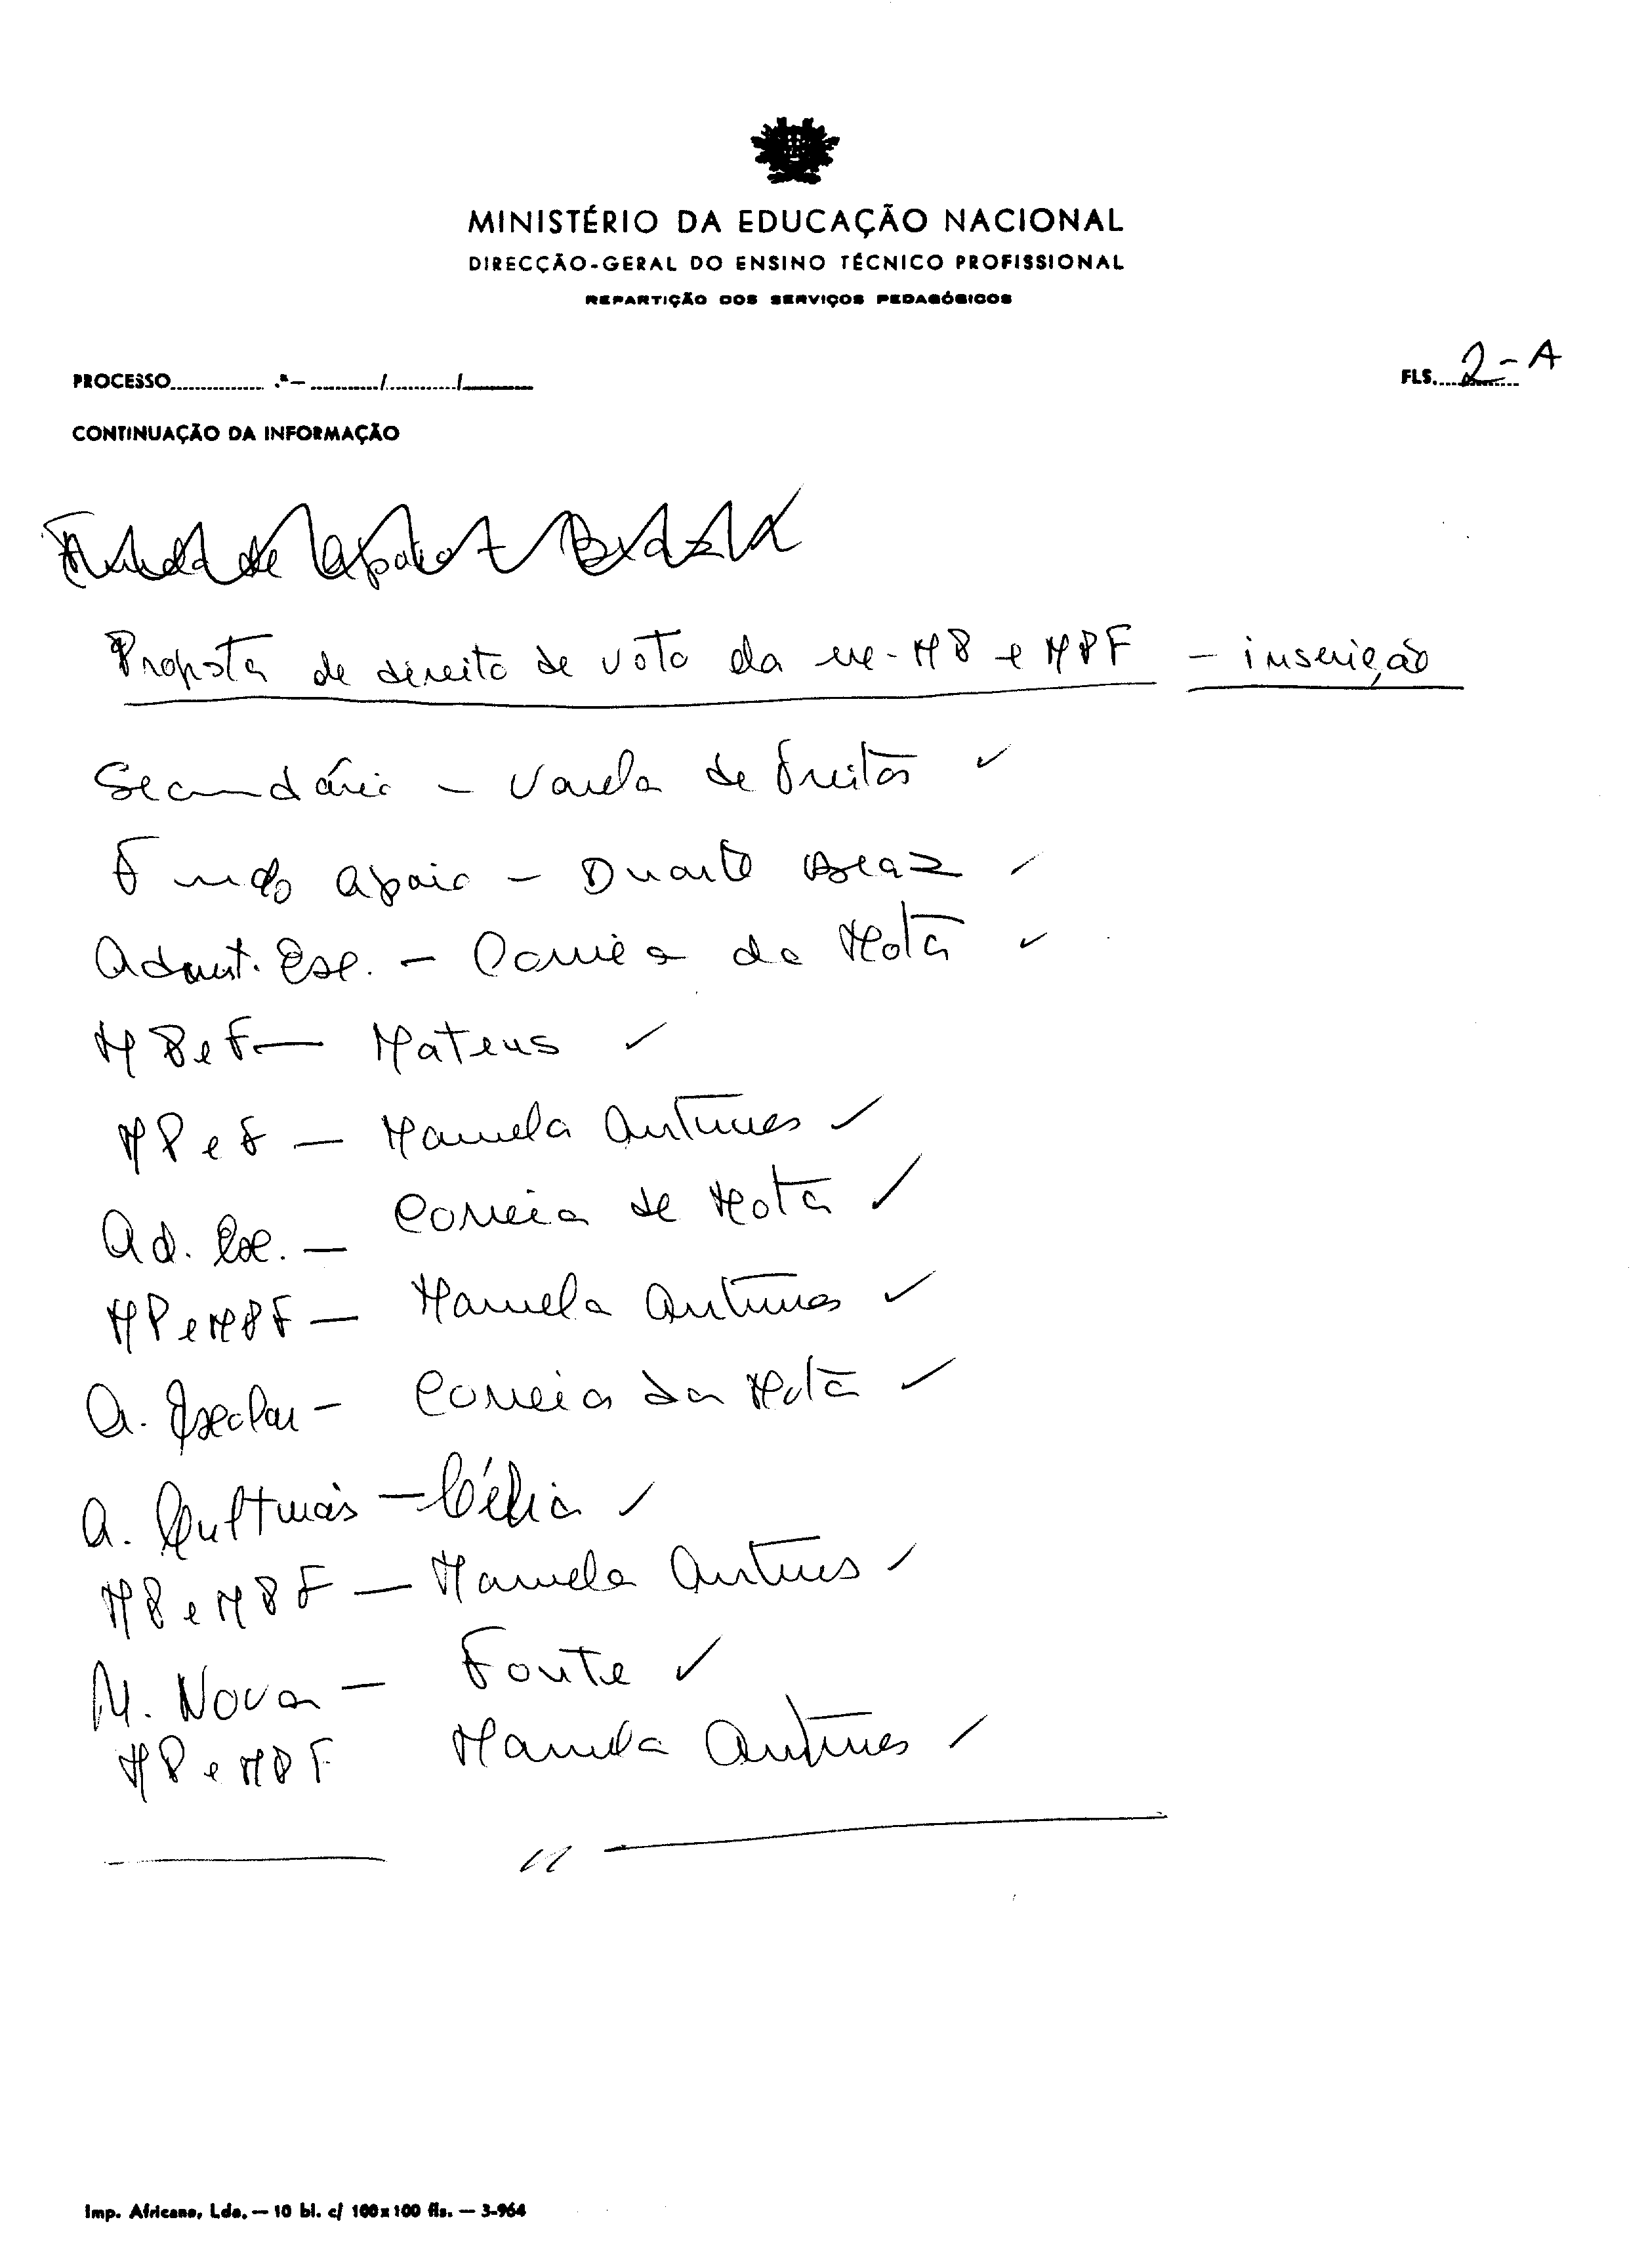 MINISTÉRIO DA EDUCAÇÃO NACIONAL
DIRECÇÃO-GERAL DO ENSINO TÉCNICO PROFISSIONAL
REPARTIÇÃO DOS SERVIÇOS PEDAGÓGICOS
PROCESSO ............... .º— .........../.........../...........
FLS. 2-A
CONTINUAÇÃO DA INFORMAÇÃO
de apoio - Braz
Proposta de direito de voto da ex-MP e MPF - inscrição
Secundário - Varela de Freitas ✓
Fundo apoio - Duarte Braz ✓
Admt. Esc. - Correia da Mota ✓
MP e F - Mateus ✓
MP e F - Manuela Antunes ✓
Ad. Esc. - Correia de Mota ✓
MP e MPF - Manuela Antunes ✓
A. Escolar - Correia da Mota ✓
A. Culturais - Célia ✓
MP e MPF - Manuela Antunes ✓
M. Nova - Fonte ✓
MP e MPF Manuela Antunes ✓
Imp. Africana, Lda. — 10 bl. c/ 100x100 fls. — 3-964